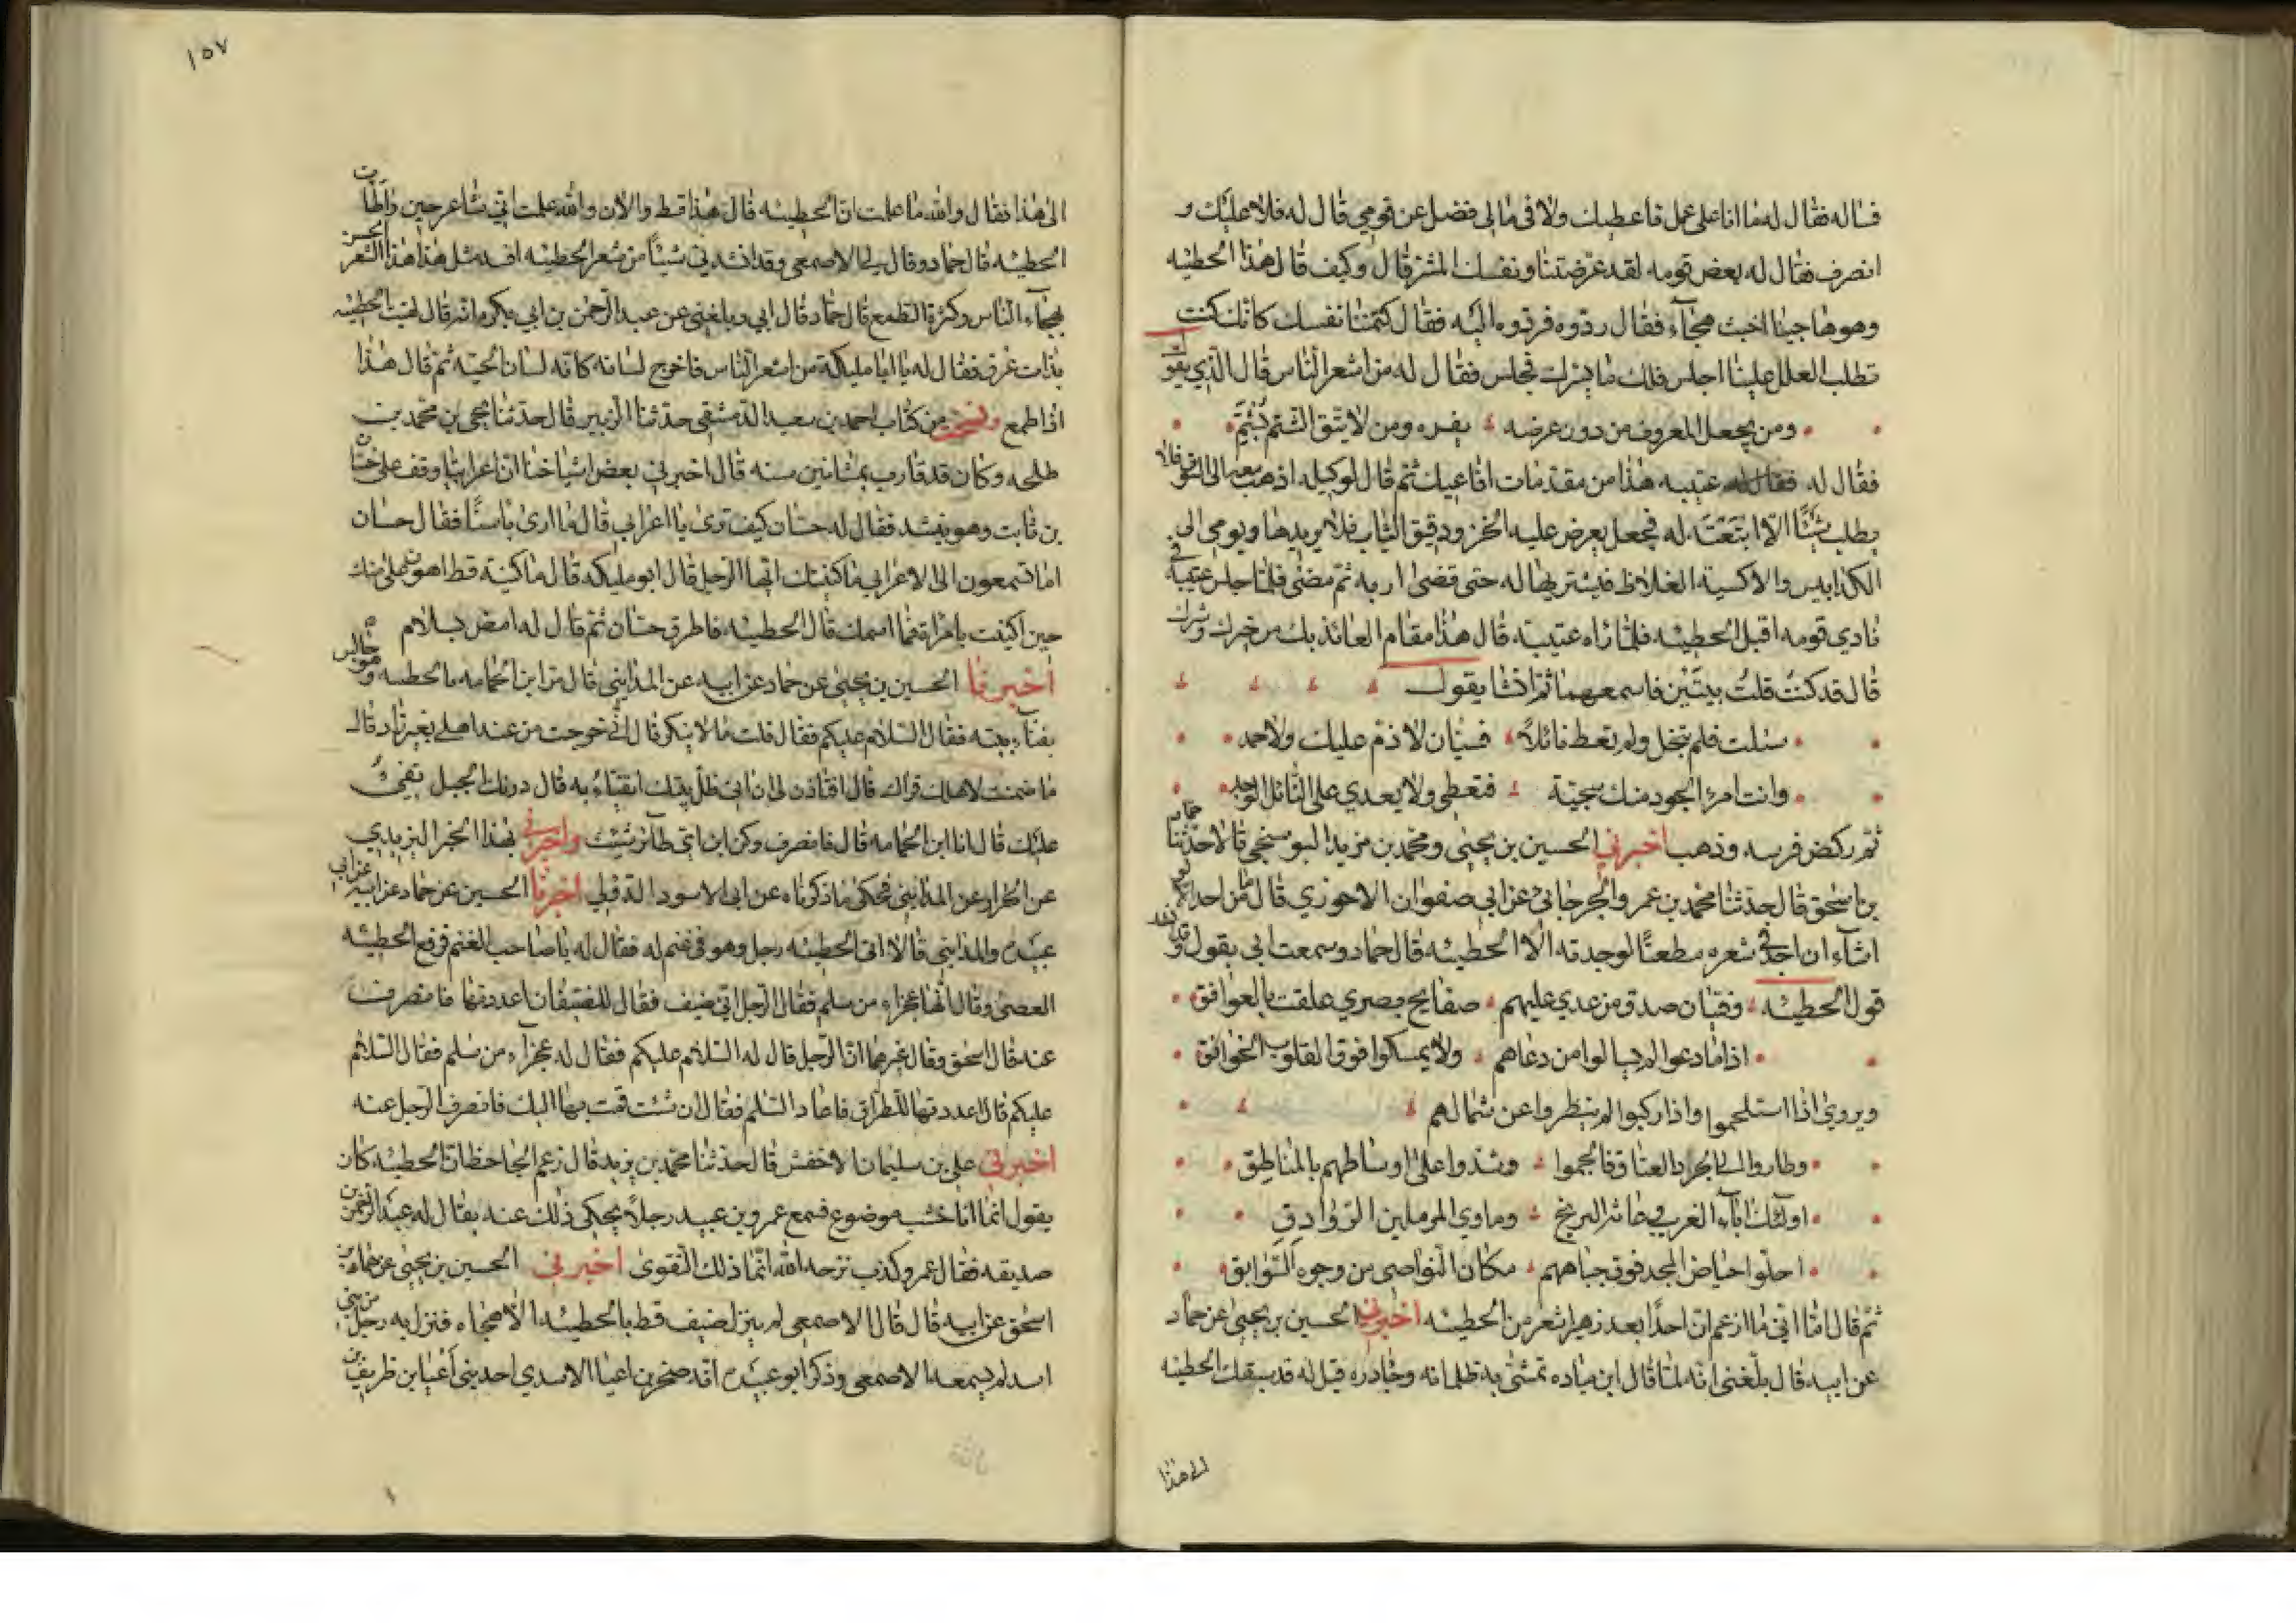 فساله فقال له ما انا على عمل فاعطيك ولا في مالي فضل عن قومي قال له فلا عليك و
انصرف فقال له بعض قومه لقد عرضتنا ونفسك للشر قال وكيف قال هذا الحطيئه
وهو هاجينا اخبث هجآء فقال ردوه فردوه اليه فقال كتمتنا نفسك كانك كنت
تطلب العلل علينا اجلس فلك ما يسرك فجلس فقال له من اشعر الناس قال الذي يقول
ومن يجعل المعروف من دون عرضه يفره ومن لا يتق الشتم يشتم
فقال له عتيبه هذا من مقدمات افاعيك ثم قال لوكيله اذهب معه الى السوق فلا
يطلب شيئًا الا ابتعته له فجعل يعرض عليه الخز ودقيق الثياب فلا يريدها ويومي الى
الكرابيس والاكسية الغلاظ فيشتريها له حتى قضى اربه ثم مضى فلما جلس عتيبة في
نادي قومه اقبل الحطيئه فلما راه عتيبة قال هذا مقام العائذ بك من خيرك وشرك
قال قد كنت قلت بيتين فاسمعهما ثم انشا يقول
سئلت فلم تبخل ولم تعط نائلاً فسيان لا ذم عليك ولا حمد
وانت امرء الجود منك سجية فتعطي ولا يعدي على النائل الوجد
ثم ركض فرسه وذهب اخبرني الحسين بن يحيى ومحمد بن مزيد البوسنجي قالا حدثنا حماد
بن اسحق قال حدثنا محمد بن عمرو الجرجاني عن ابي صفوان الاحوزي قال ما من احد
اشآء ان اجد في شعره مطعنًا لوجدته الا الحطيئه قال حماد وسمعت ابي يقول وقد
قول الحطيئه وفتيان صدق من عدي عليهم صفايح بصري علقت بالعواتق
اذا ما دعوا لم يسالوا من دعاهم ولم يمسكوا فوق القلوب الخوافق
ويروي اذا استلحموا واذا ركبوا لم ينظروا عن شمالهم
وطاروا الى الجرد العتاق فالجموا وشدوا على اوساطهم بالمناطق
اولئك اباء الغريب وماوي المرملين
احلوا حياض المجد فوق جباههم مكان النواصي من وجوه السوابق
ثم قال اما اني ما ازعم ان احدًا بعد زهير اشعر من الحطيئه اخبرني الحسين بن يحيى عن حماد
عن ابيه قال بلغني انه لما قال ابن مياده تمشي به ظلمانه وجاذره قيل له قد سبقك الحطيئه
الى هذا
١٥٧
الى هذا فقال والله ما علمت ان الحطيئه قال هذا قط والان والله علمت اني شاعر حين واطات
الحطيئه قال حماد وقال لي الاصمعي وقد انشدني شيئًا من شعر الحطيئه افسد مثل هذا الشعر الحسن
بهجآء الناس وكثرة الطمع قال حماد قال ابي وبلغني عن عبد الرحمن بن ابي بكره انه قال لقيت الحطيئه
بذات عرق فقال له يا ابا مليكة من اشعر الناس فاخرج لسانه كانه لسان الحية ثم قال هذا
اذا طمع ونسخت من كتاب احمد بن سعيد الدمشقي حدثنا الزبير قال حدثنا يحيى بن محمد بن
طلحه وكان قد قارب ثمانين سنه قال اخبرني بعض اشياخنا ان اعرابيًا وقف على حسان
بن ثابت وهو ينشد فقال له حسان كيف ترى يا اعرابي قال ما ارى باسًا فقال حسان
اما تسمعون الى الاعرابي ما كنيتك ايها الرجل قال ابو مليكه قال ما كنت قط اهون علي منك
حين اكتنيت بامراة فما اسمك قال الحطيئه فاطرق حسان ثم قال له امض بسلام
اخبرنا الحسين بن يحيى عن حماد عن ابيه عن المدايني قال مر ابن الحمامه بالحطيئه وهو جالس
بفنآء بيته فقال السلام عليكم فقال قلت ما لا ينكر قال اني خرجت من عند اهلي بغير زاد قال
ما ضمنت لاهلك قراك قال افتاذن لي ان اتي ظل بيتك اتفيا به قال دونك الجبل يفئ
عليك قال انا ابن الحمامه قال فانصرف وكن ابن اي طائر شئت واخبرني بهذا الخبر اليزيدي
عن الخراز عن المدايني فحكى ما ذكرناه عن ابي الاسود الدؤلي اخبرنا الحسين عن حماد عن ابيه عن ابي
عبيدة والمدايني قالا اتى الحطيئه رجل وهو في غنم له فقال له يا صاحب الغنم فرفع الحطيئه
العصى وقال انها عجراء من سلم فقال الرجل اني ضيف فقال للضيفان اعددتها فانصرف
عنه قال اسحق وقال غيرهما ان الرجل قال له السلام عليكم فقال له عجرآء من سلم فقال السلام
عليكم قال اعددتها للطراق فاعاد السلم فقال ان شئت قمت بها اليك فانصرف الرجل عنه
اخبرني علي بن سليمان الاخفش قال حدثنا محمد بن يزيد قال زعم الجاحظ ان الحطيئه كان
يقول انما انا حسب موضوع فسمع عمرو بن عبيد رجلاً يحكي ذلك عنه يقال له عبد الرحمن بن
صديقه فقال عمرو كذب ترحه الله انما ذلك التقوى اخبرني الحسين بن يحيى عن حماد بن
اسحق عن ابيه قال قال الاصمعي لم ينزل ضيف قط بالحطيئه الا هجاه فنزل به رجل من بني
اسد لم يسمه الاصمعي وذكر ابو عبيدة انه صخر بن اعيا الاسدي احد بني اعيا بن طريف بن